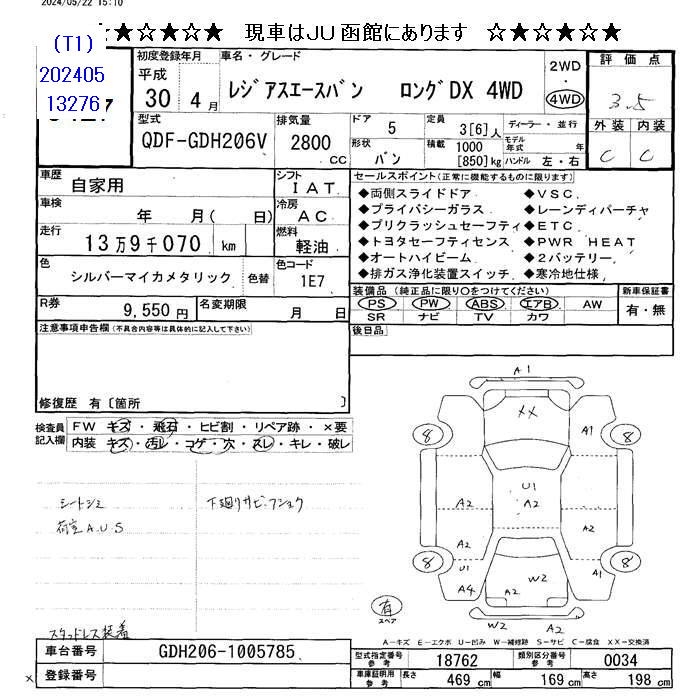 2024/05/22 15:10
☆★☆★☆★ 現車はJU函館にあります ☆★☆★☆★
(T1)
202405
13276
初度登録年月
平成
30年 4月
車名・グレード
レジアスエースバン ロングDX 4WD
2WD
・
4WD
評価点
3.5
外装 内装
C C
型式
QDF-GDH206V
排気量
2800
CC
ドア 5
形状 バン
定員 3[6]人
積載 1000
[850]kg
ディーラー・並行
モデル年式 年
ハンドル 左・右
車歴
自家用
シフト
IAT
車検
年 月( 日)
冷房
AC
走行
13万9千070 km
燃料
軽油
色
シルバーマイカメタリック
色替
色コード
1E7
R券
9,550円
名変期限
月 日
セールスポイント(正常に機能するものに限ります)
◆両側スライドドア ◆VSC
◆プライバシーガラス ◆レーンディパーチャ
◆プリクラッシュセーフティ ◆ETC
◆トヨタセーフティセンス ◆PWR HEAT
◆オートハイビーム ◆2バッテリー
◆排ガス浄化装置スイッチ ◆寒冷地仕様
装備品(純正品に限り○をつけてください)
PS PW ABS エアB AW
SR ナビ TV カワ
新車保証書
有・無
後日品
注意事項申告欄(不具合内容等は具体的に記入して下さい)
修復歴 有〔箇所 〕
検査員
記入欄
FW キズ・飛石・ヒビ割・リペア跡・×要
内装 キズ・汚レ・コゲ・穴・スレ・キレ・破レ
シートシミ
荷室A.U.S
下廻りサビ・フショク
スタッドレス装着
A1
XX
A1
8
8
U1
A2
A2
A2
A2
U1
A4
A2
W2
A1
8
8
W2
A2
有
スペア
A-キズ E-エクボ U-凹み W-補修跡 S-サビ C-腐食 XX-交換済
車台番号
GDH206-1005785
登録番号
×
型式指定番号
参考
18762
類別区分番号
参考
0034
車庫証明用
参考
長さ 469 cm 幅 169 cm 高さ 198 cm